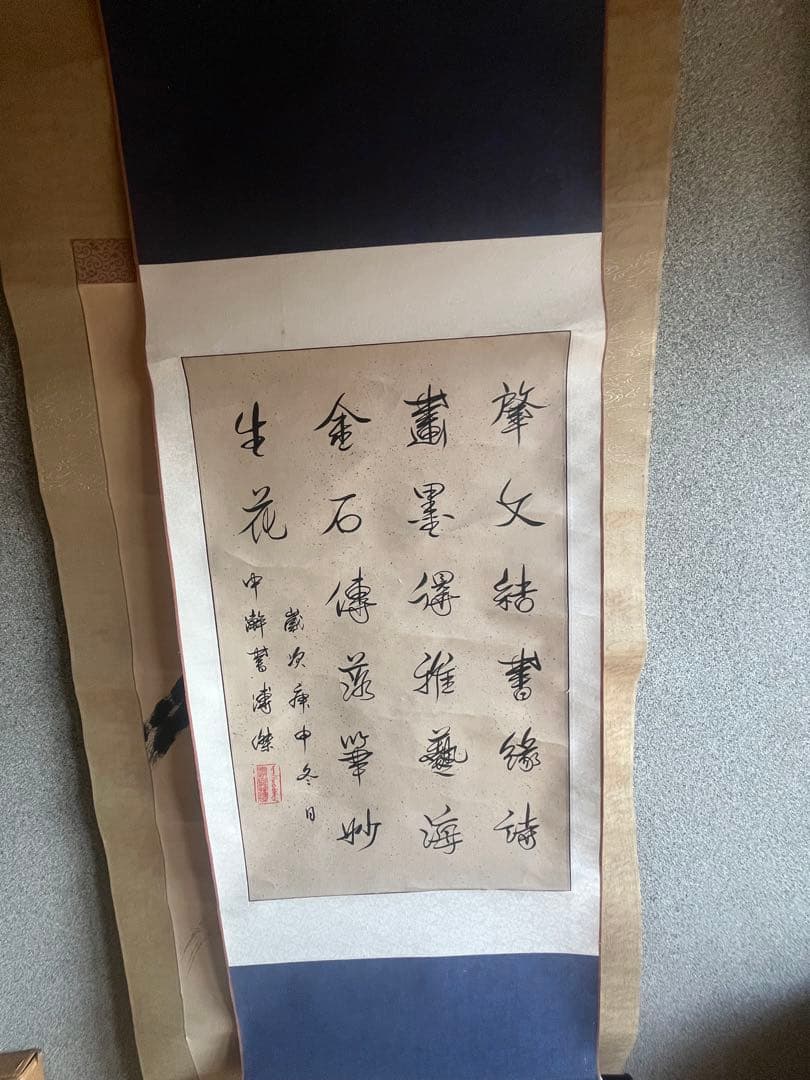 肇文結書緣詩
畫墨得雅藝海
金石傳落筆妙
生花
歲次庚申冬日
中澣書溥傑